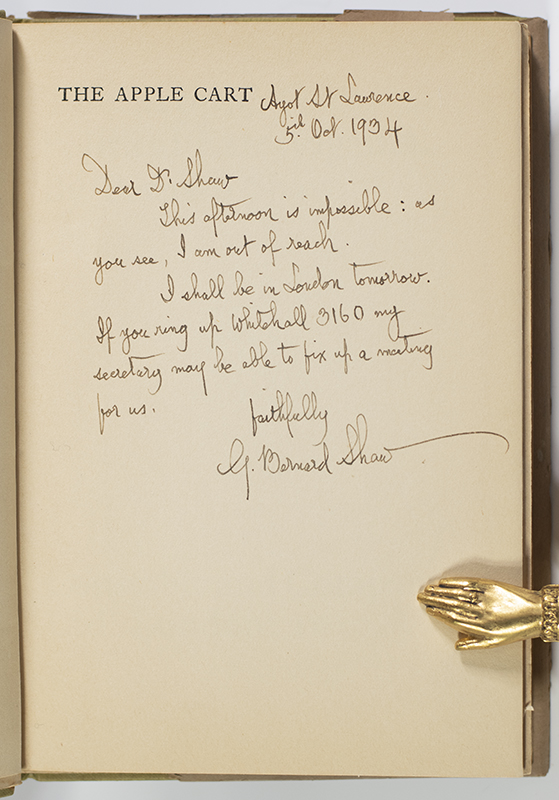 THE APPLE CART Ayot St Lawrence.
Oct. 1934
Dear Dr. Shaw
This afternoon is impossible: as
you see, I am out of reach.
I shall be in London tomorrow.
If you ring up Whitehall 3160 my
secretary may be able to fix up a meeting
for us.
faithfully
G. Bernard Shaw